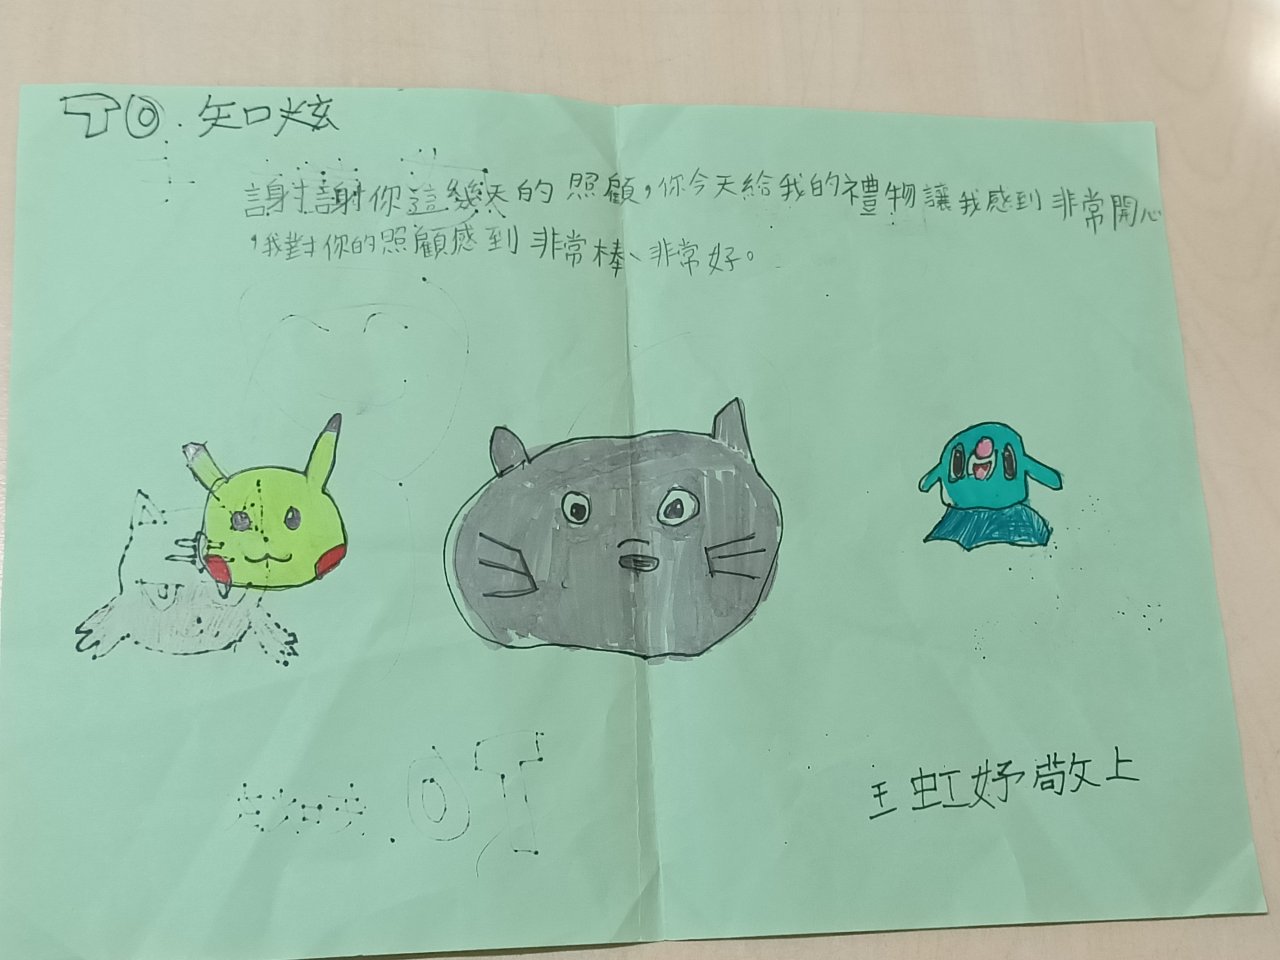 TO.知炫
謝謝你這幾天的照顧,你今天給我的禮物讓我感到非常開心
,我對你的照顧感到非常棒、非常好。
王虹妤敬上